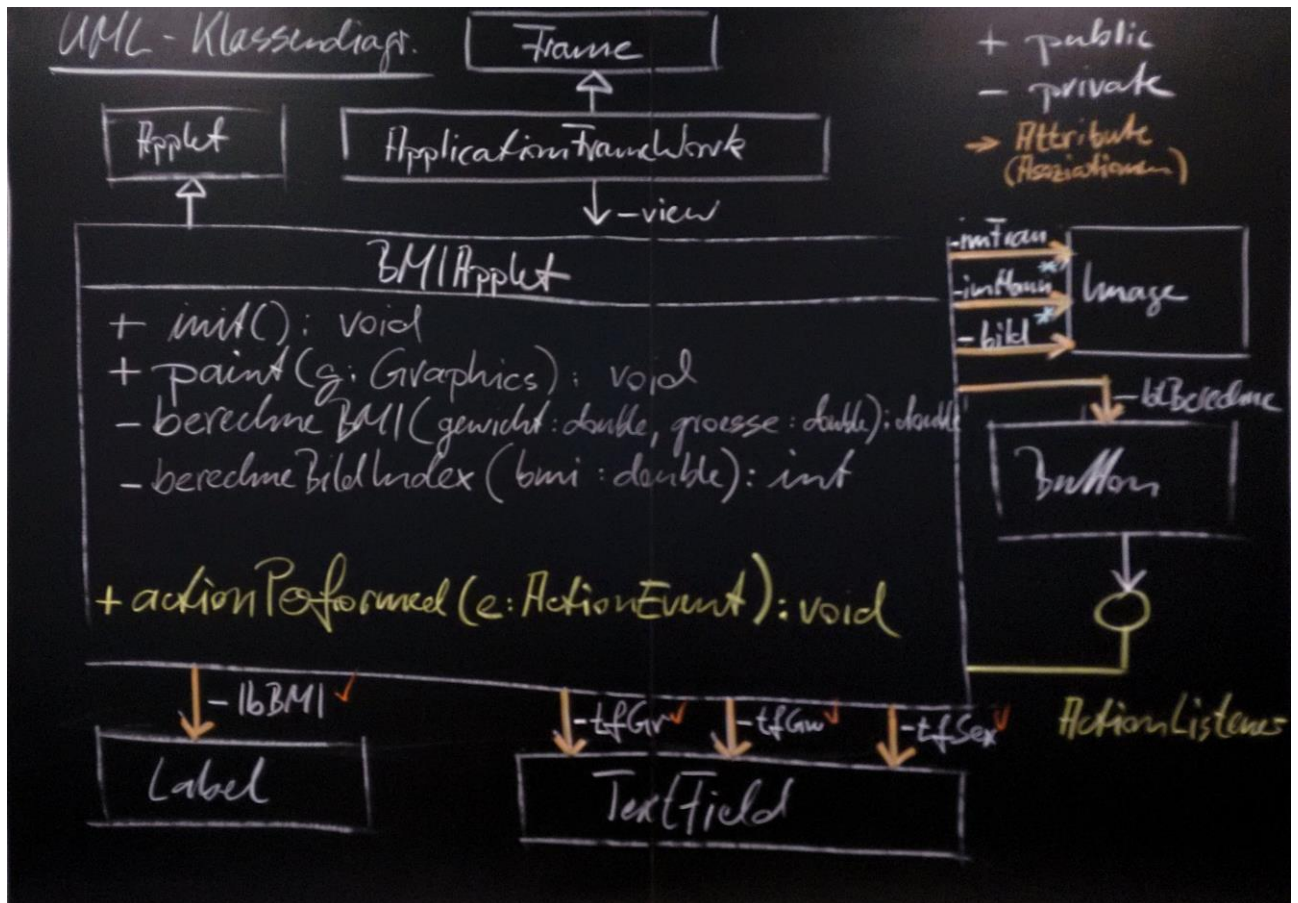 UML - Klassendiagr.
Frame
+ public
- private
→ Attribute
(Assoziationen)
Applet
ApplicationFrameWork
-view
BMIApplet
+ init(): void
+ paint(g: Graphics): void
- berechneBMI(gewicht: double, groesse: double): double
- berechneBildIndex (bmi: double): int
+ actionPerformed(e: ActionEvent): void
-imFrau
*
-imMann
*
-bild
Image
-btBerechne
Button
ActionListener
-lbBMI ✓
-tfGr ✓
-tfGw ✓
-tfSex ✓
Label
TextField